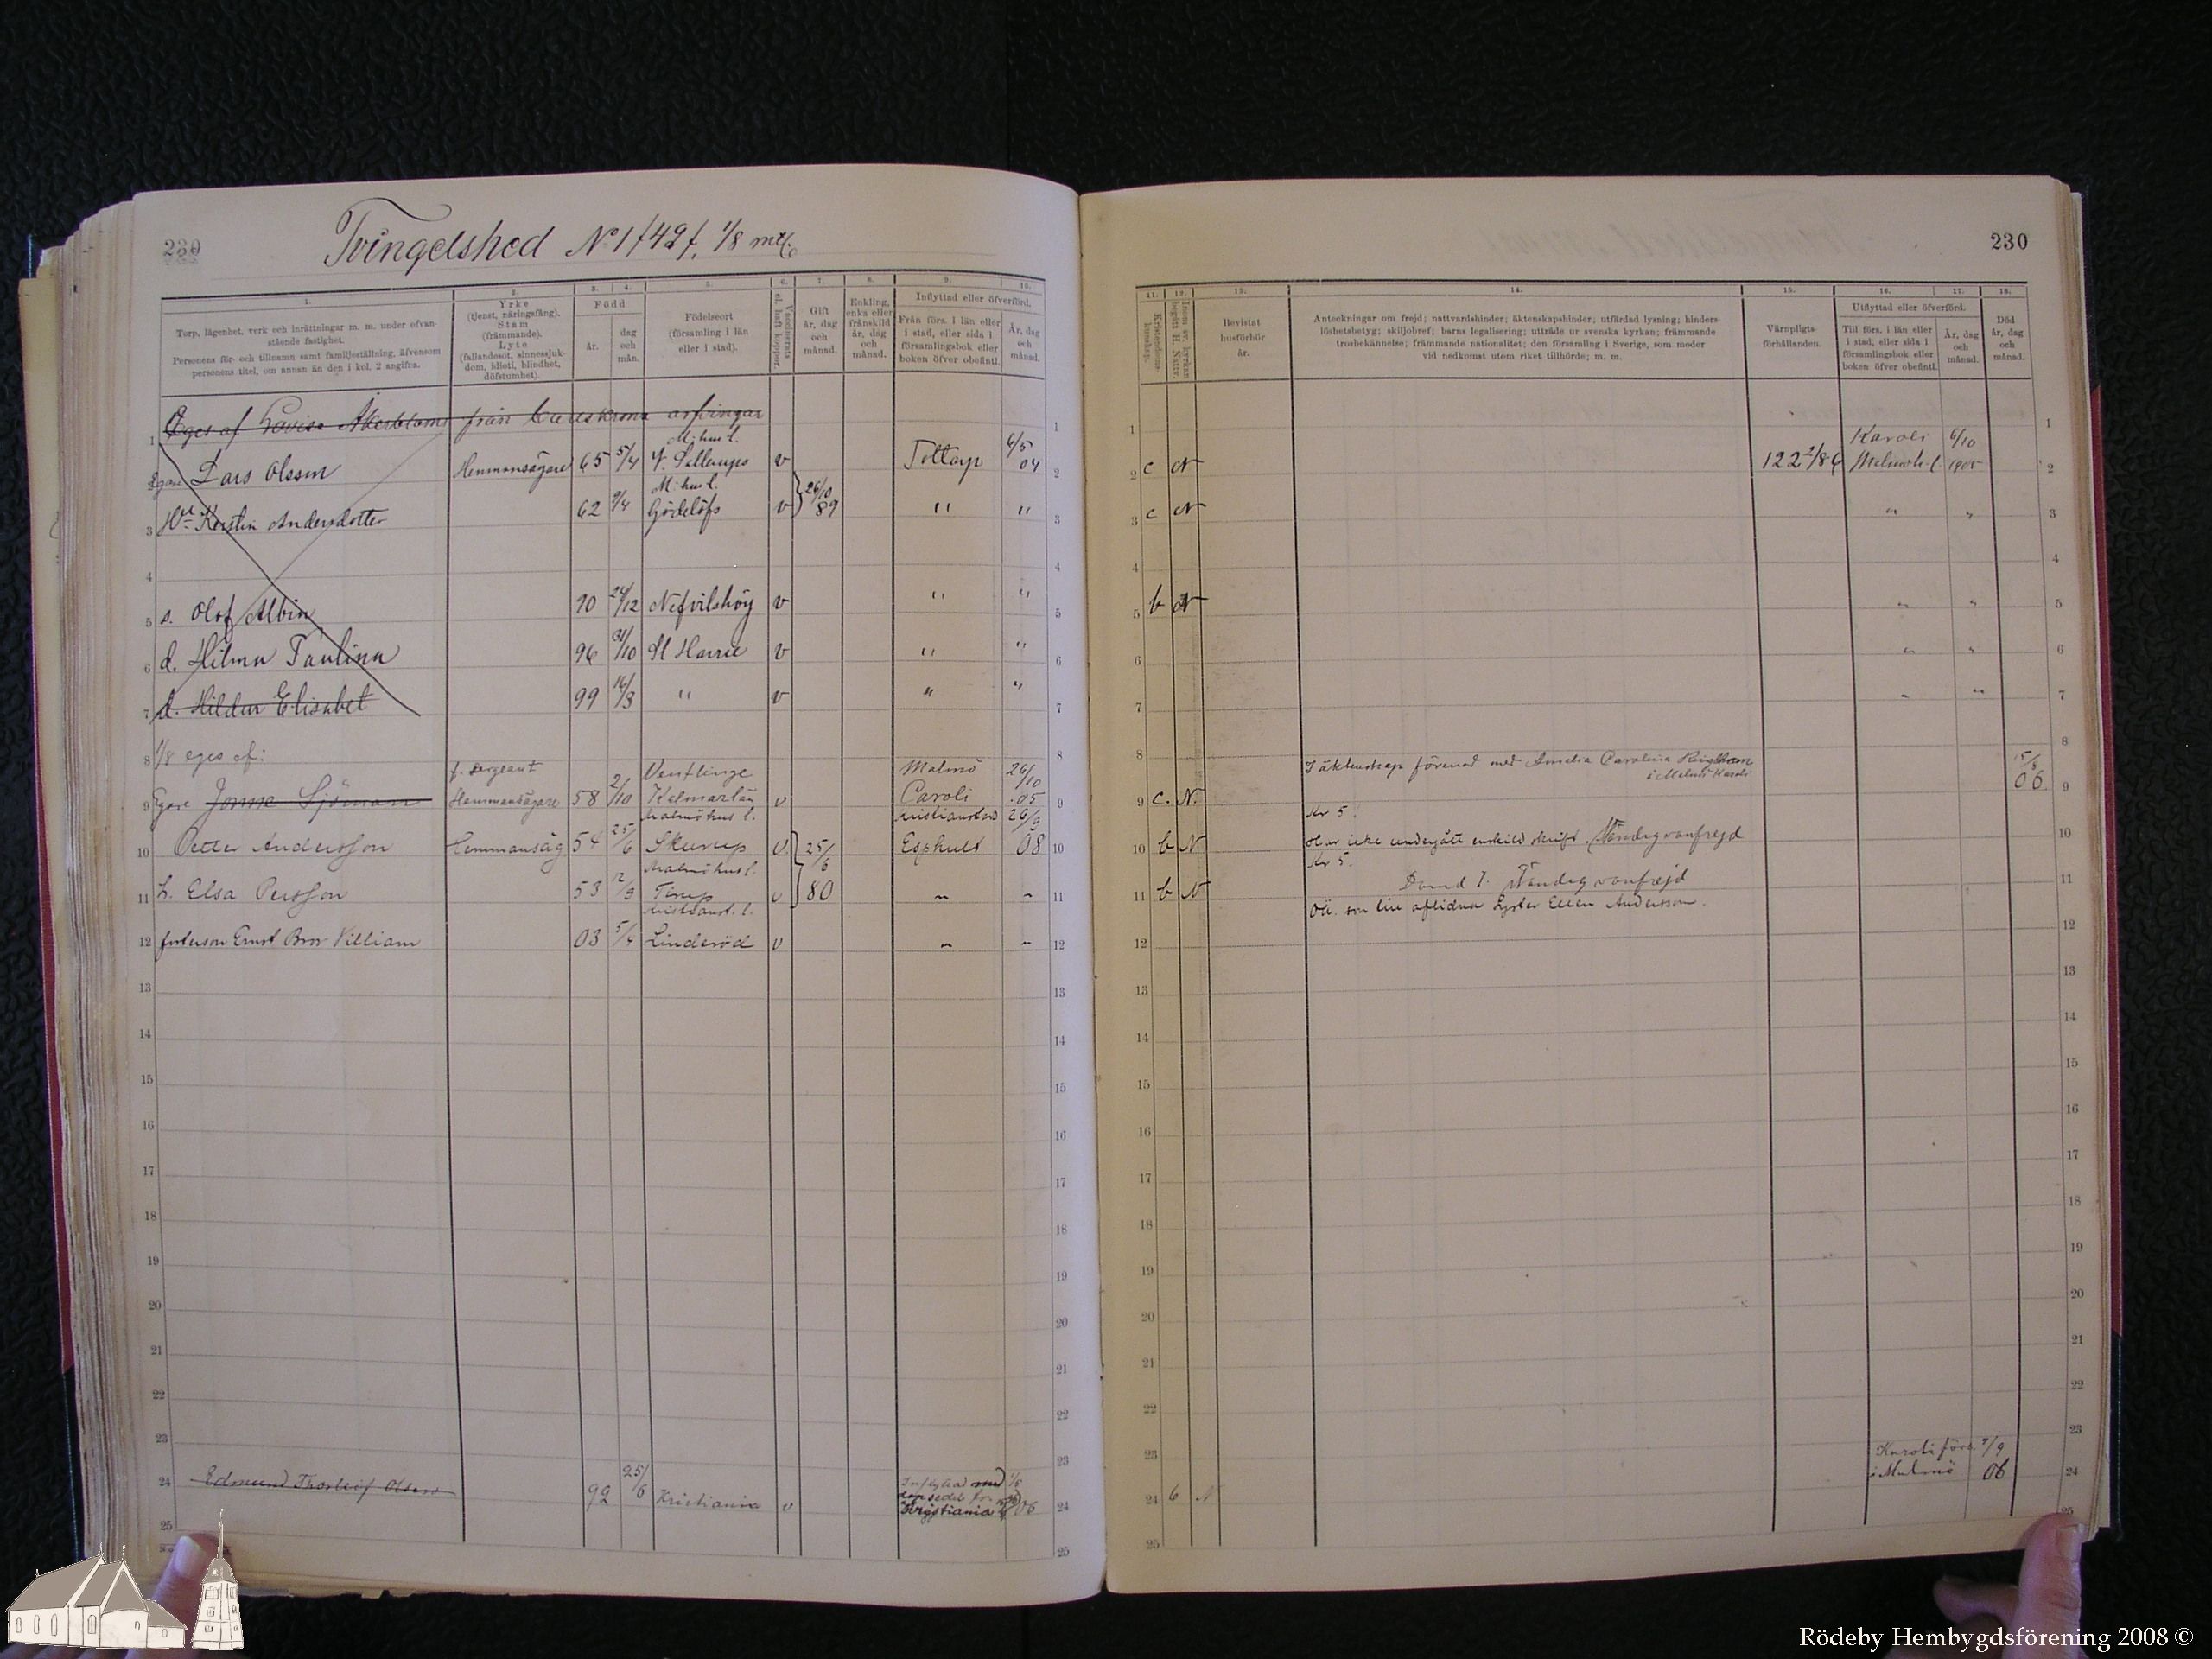 230
Tvingelshed No 1 f 49 f. 1/8 mtl.
1. 2. 3. 4. 5. 6. 7. 8. 9. 10.
Torp, lägenhet, verk och inrättningar m. m. under ofvanstående fastighet.
Personens för- och tillnamn samt familjeställning, äfvensom personens titel, om annan än den i kol. 2 angifna.
Yrke
(tjenst, näringsfång).
Stam
(främmande).
Lyte
(fallandesot, sinnessjukdom, idioti, blindhet, döfstumhet).
Född
år.
dag och mån.
Födelseort
(församling i län eller i stad).
Vaccinerats el. haft koppor.
Gift
år, dag och månad.
Enkling, enka eller frånskild
år, dag och månad.
Inflyttad eller öfverförd.
Från förs. i län eller i stad, eller sida i församlingsbok eller boken öfver obefintl.
År, dag och månad.
1 Eges af Lovisa Åkerbloms från Carlskrona arfvingar
M:hus l.
2 Egare Lars Olsson Hemmansägare 65 5/4 V. Sallerups v Tottarp 6/5 04
M:hus l.
3 Hu Kerstin Andersdotter 62 9/4 Gödelöfs v 26/10 89 " "
4
5 s. Olof Albin 90 24/12 Nefvilshög v " "
6 d. Hilma Paulina 96 31/10 St Harrie v " "
7 d. Hildur Elisabet 99 16/3 " v " "
8 1/8 eges af:
f. Sergeant Ventlinge Malmö 26/10
9 Egare Jonne Sjöman Hemmansägare 58 2/10 Kalmar län v Caroli .05
Malmöhus l. Kristianstad 26/9
10 Petter Andersson Hemmansäg 54 25/6 Skurup v 25/6 Esphult 08
Malmöhus l.
11 h. Elsa Persson 53 12/9 v 80 " "
Kristianst. l.
12 fosterson Ernst Bror Villiam 03 5/4 Linderöd v " "
13
14
15
16
17
18
19
20
21
22
23
24 Edmund Thorleif Olsen 92 25/6 Kristiania v Inflyttad Kristiania 06
25
230
11. 12. 13. 14. 15. 16. 17. 18.
Kristendomskunskap.
Bevistat husförhör
år.
Anteckningar om frejd; nattvardshinder; äktenskapshinder; utfärdad lysning; hinderslöshetsbetyg; skiljobref; barns legalisering; utträde ur svenska kyrkan; främmande trosbekännelse; främmande nationalitet; den församling i Sverige, som moder vid nedkomst utom riket tillhörde; m. m.
Värnpligtsförhållanden.
Utflyttad eller öfverförd.
Till förs. i län eller i stad, eller sida i församlingsbok eller boken öfver obefintl.
År, dag och månad.
Död
år, dag och månad.
1
Karoli 6/10
2 c N 122 2/86 Malmöh. l. 1905
3 c N " "
4
5 b N " "
6 " "
7 " "
8 I äktenskap förenad med Amelia Carolina i Malmö Karoli 15/8
9 c. N. 06.
Kr 5.
10 b N Har icke undergått enskild skrift.
Kr 5.
11 b N
Oä. son till aflidna Ellen Andersson.
12
13
14
15
16
17
18
19
20
21
22
23
Karoli förs.
24 b N i Malmö 06
25
Rödeby Hembygdsförening 2008 ©